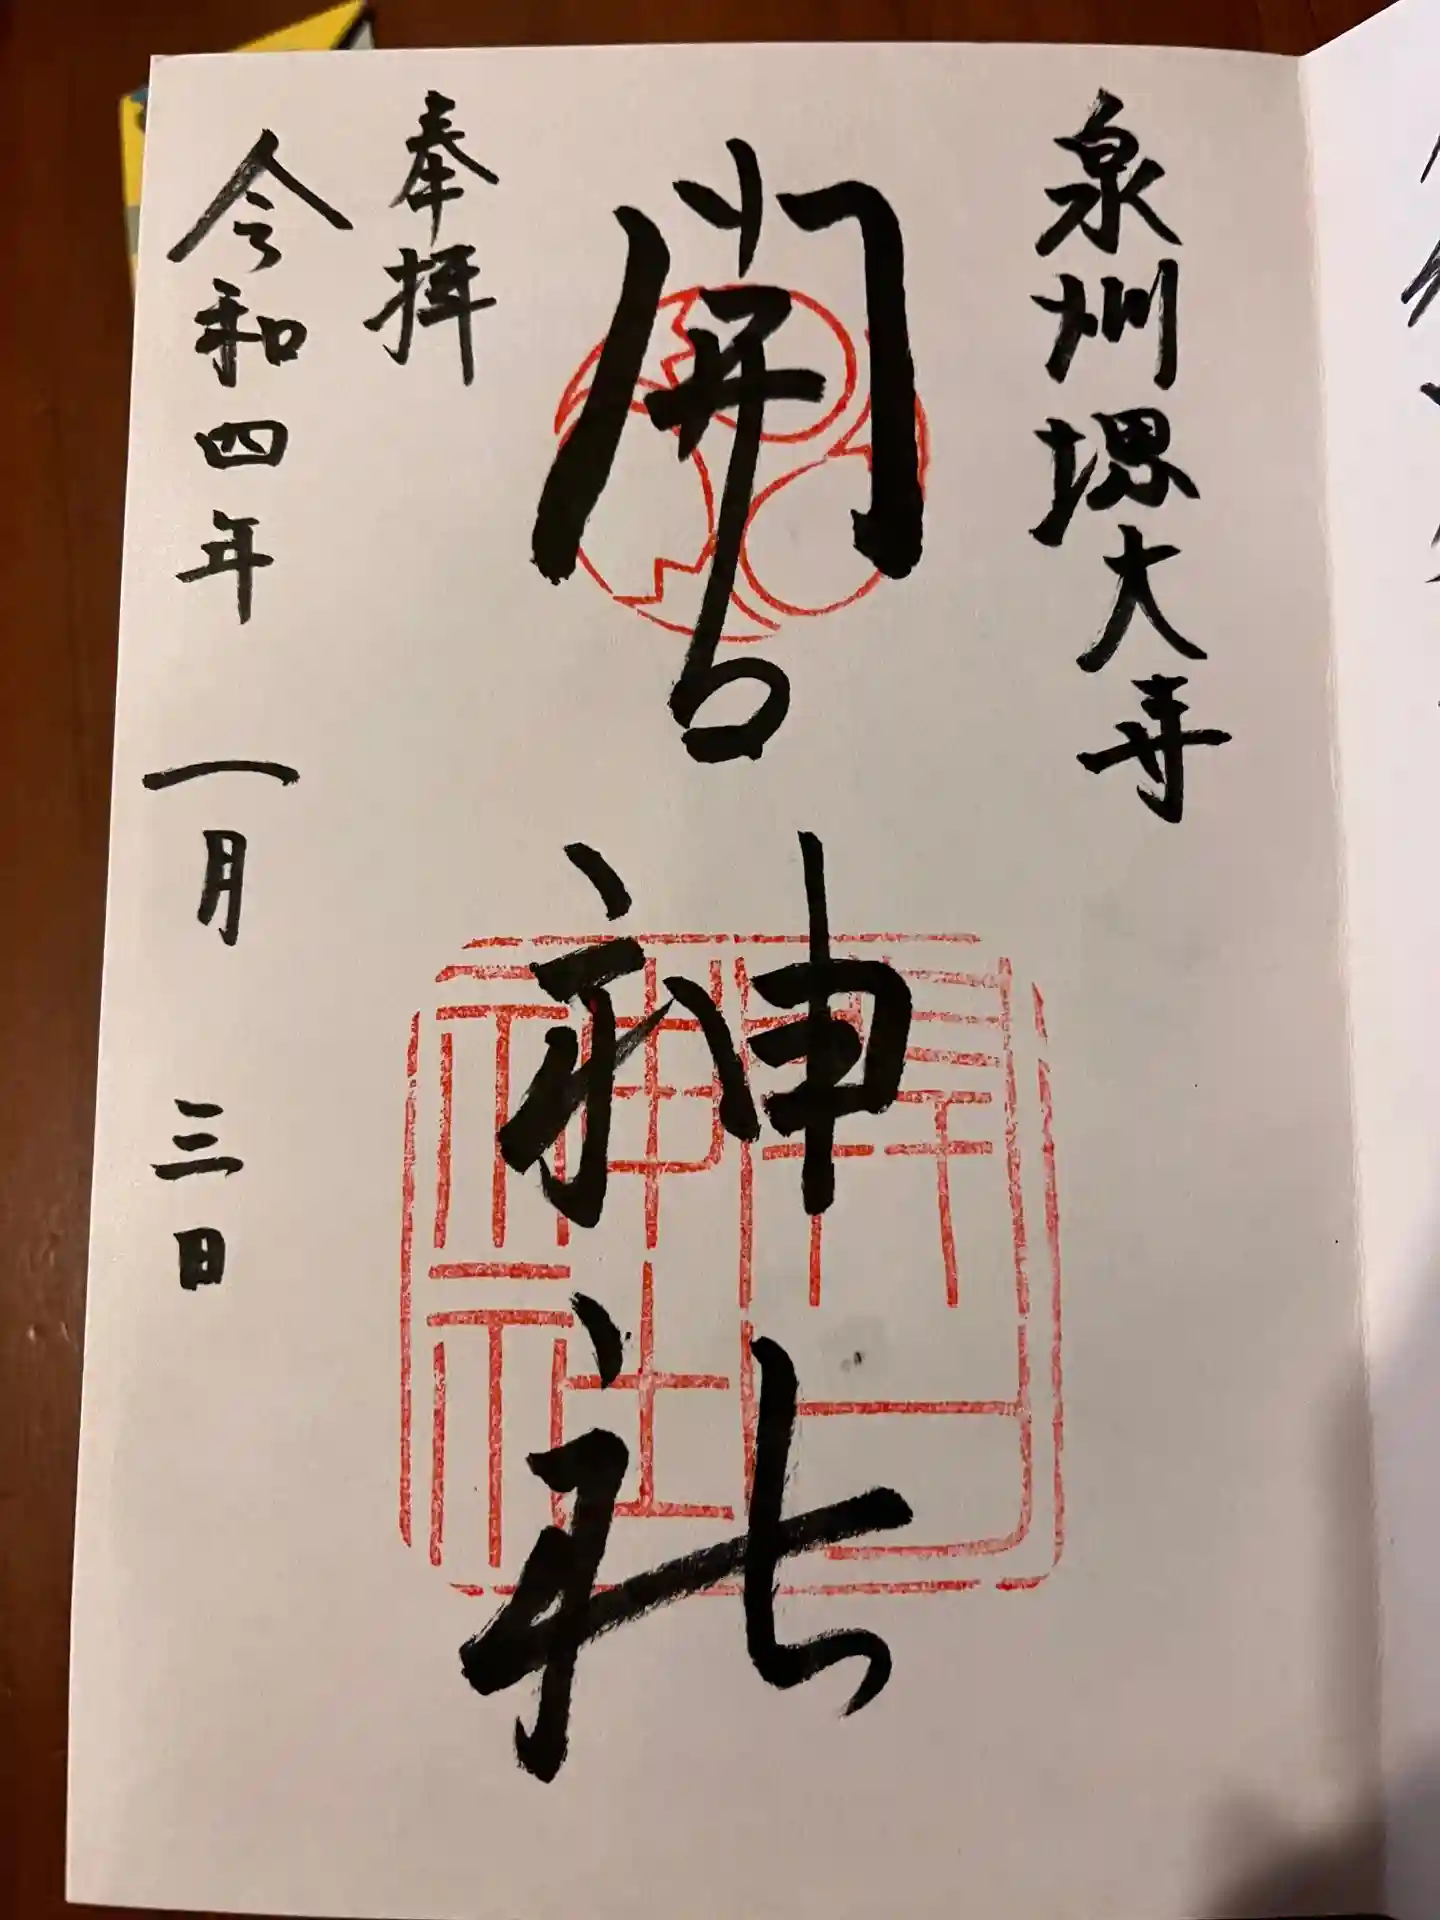 泉州堺大寺
開口神社
奉拝
令和四年 一月 三日
開口神社